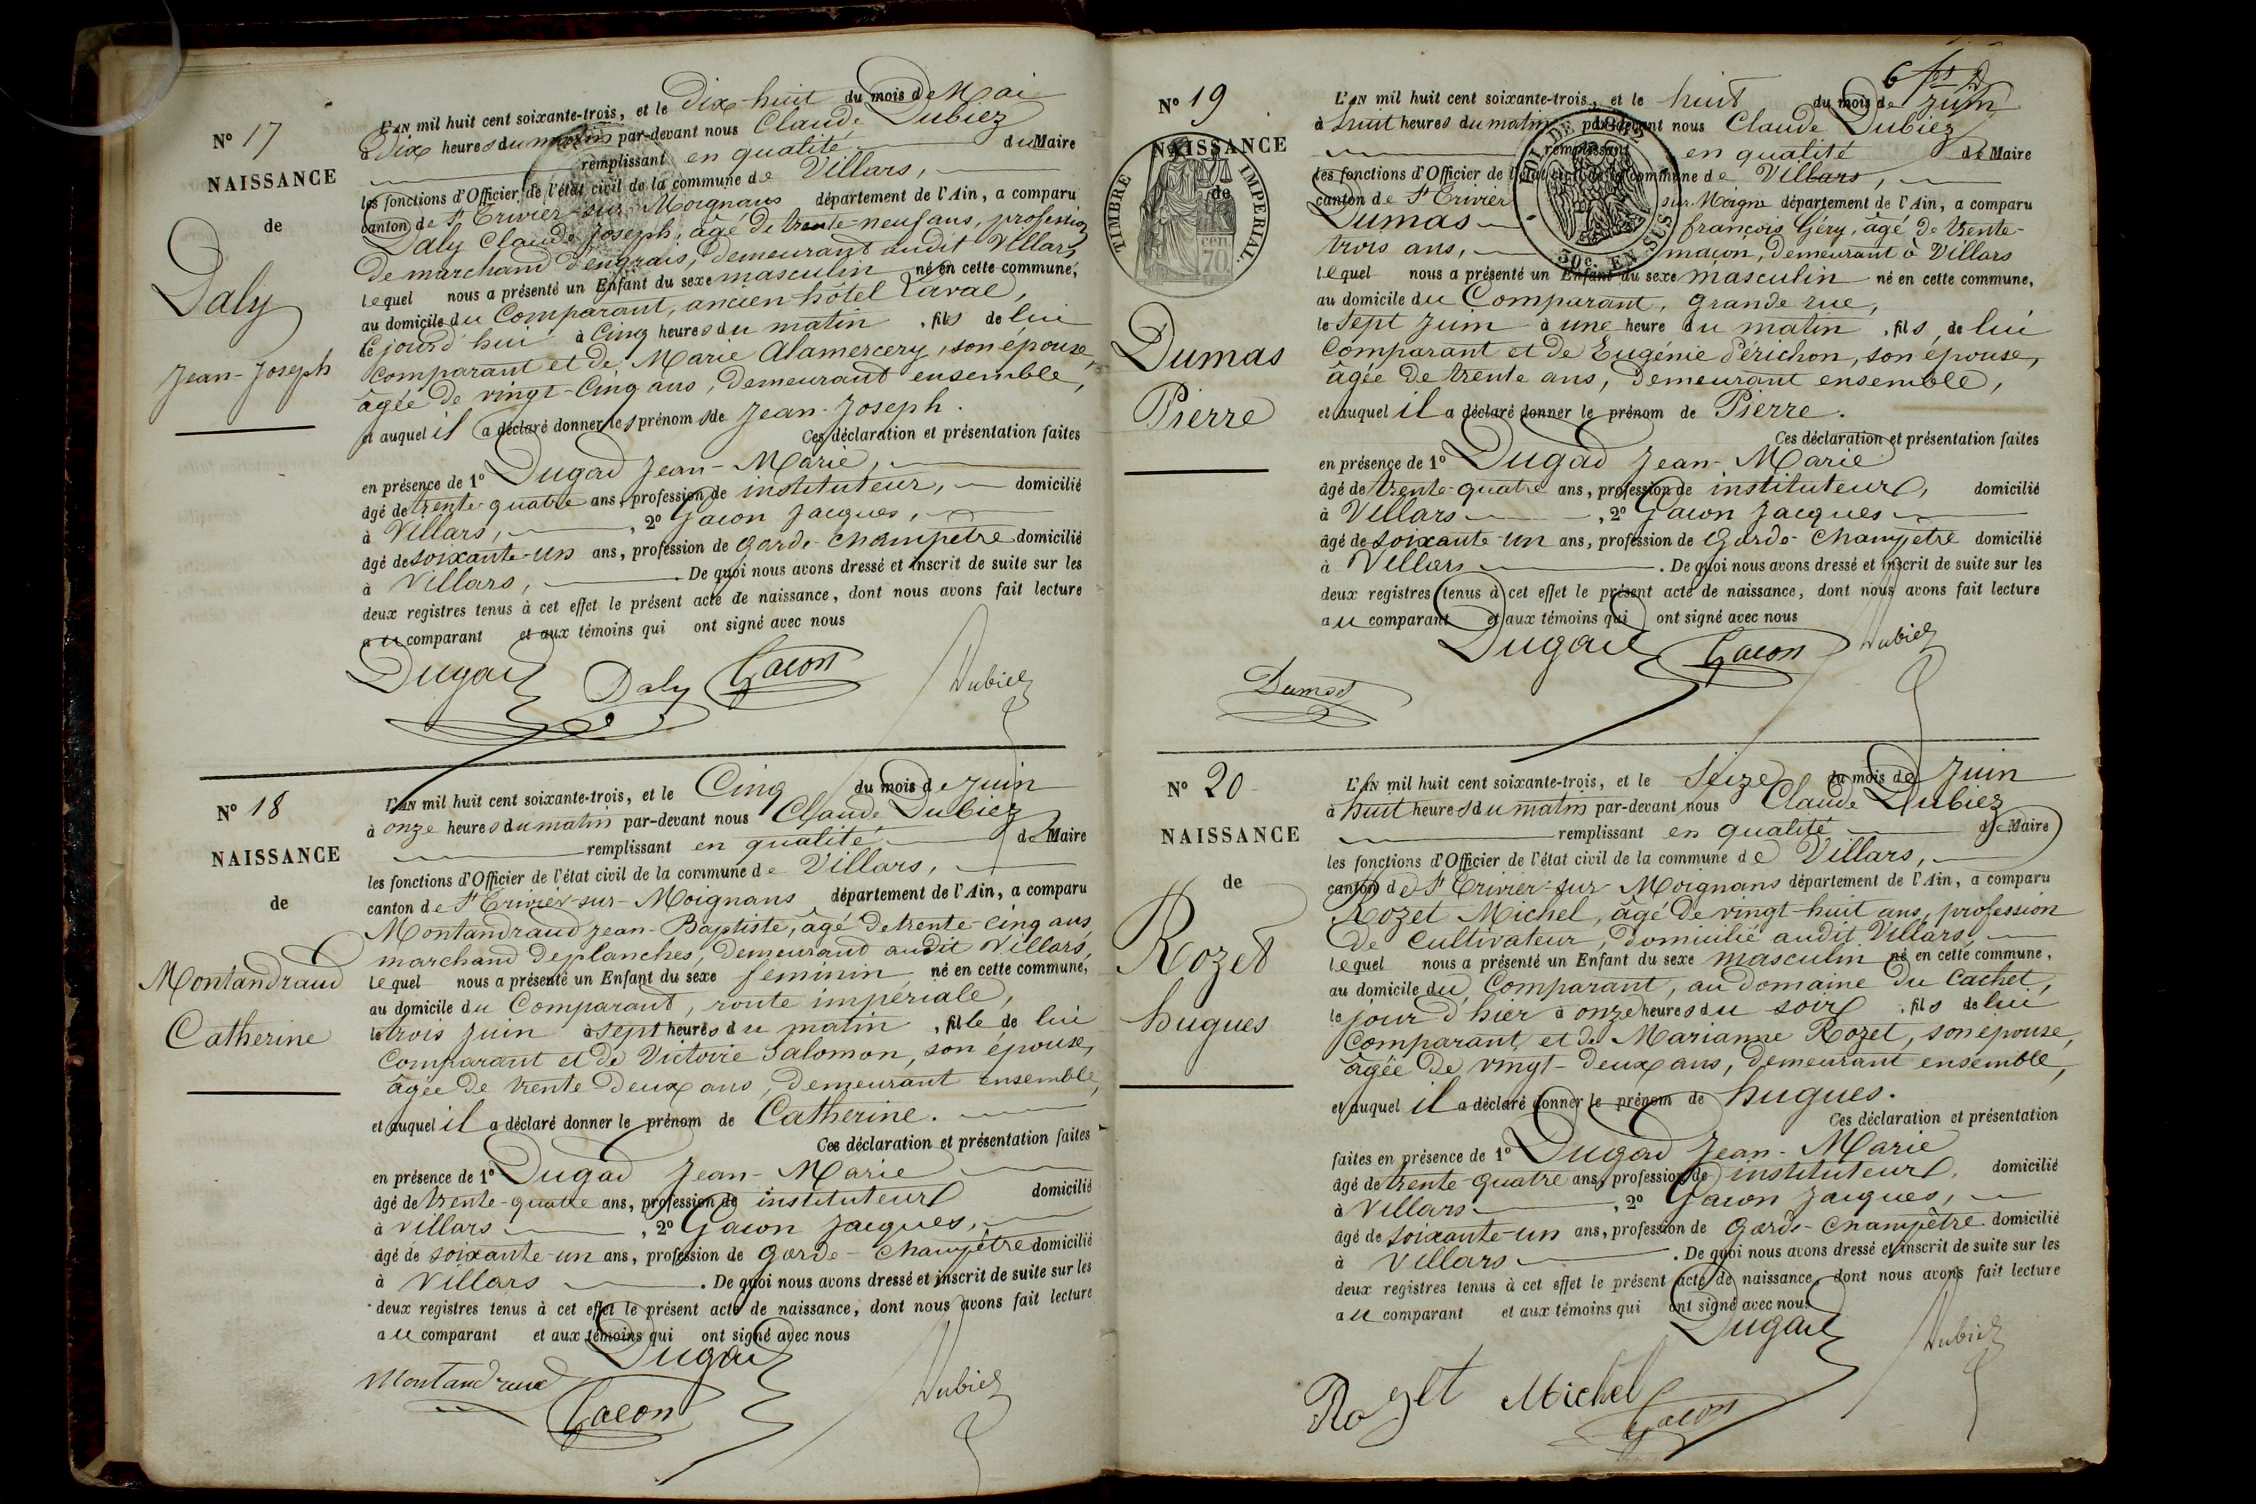 N° 17
NAISSANCE
de
Daly
Jean-Joseph
L'AN mil huit cent soixante-trois, et le Dix-huit du mois de Mai
à Dix heures du matin par-devant nous Claude Dubiez
remplissant en qualité du Maire
les fonctions d'Officier de l'état civil de la commune de Villars,
canton de St Trivier-sur-Moignans département de l'Ain, a comparu
Daly Claude Joseph, âgé de trente-neuf ans, profession
de marchand d'engrais, demeurant audit Villars,
lequel nous a présenté un Enfant du sexe masculin né en cette commune,
au domicile du Comparant, ancien hôtel Laval,
ce jourd'hui à Cinq heures du matin, fils de lui
Comparant et de Marie Alamercery, son épouse,
âgée de vingt-Cinq ans, demeurant ensemble,
et auquel il a déclaré donner les prénoms de Jean-Joseph.
Ces déclaration et présentation faites
en présence de 1° Dugad Jean-Marie,
âgé de trente-quatre ans, profession de instituteur, domicilié
à Villars, , 2° Gacon Jacques,
âgé de soixante-un ans, profession de garde-champêtre domicilié
à Villars, . De quoi nous avons dressé et inscrit de suite sur les
deux registres tenus à cet effet le présent acte de naissance, dont nous avons fait lecture
au comparant et aux témoins qui ont signé avec nous
Dugad Daly Gacon Dubiez
N° 18
NAISSANCE
de
Montandraud
Catherine
L'AN mil huit cent soixante-trois, et le Cinq du mois de Juin
à onze heures du matin par-devant nous Claude Dubiez
remplissant en qualité de Maire
les fonctions d'Officier de l'état civil de la commune de Villars,
canton de St Trivier-sur-Moignans département de l'Ain, a comparu
Montandraud Jean-Baptiste, âgé de trente-cinq ans
marchand de planches, demeurant audit Villars,
lequel nous a présenté un Enfant du sexe feminin né en cette commune,
au domicile du Comparant, route impériale,
le trois Juin à sept heures du matin, fille de lui
Comparant et de Victoire Salomon, son épouse,
âgée de trente deux ans, demeurant ensemble,
et auquel il a déclaré donner le prénom de Catherine.
Ces déclaration et présentation faites
en présence de 1° Dugad Jean-Marie
âgé de trente-quatre ans, profession de instituteur domicilié
à Villars , 2° Gacon Jacques,
âgé de soixante-un ans, profession de garde-champêtre domicilié
à Villars . De quoi nous avons dressé et inscrit de suite sur les
deux registres tenus à cet effet le présent acte de naissance, dont nous avons fait lecture
au comparant et aux témoins qui ont signé avec nous
Dugad
Montandraud Gacon Dubiez
N° 19
NAISSANCE
de
TIMBRE IMPÉRIAL
cen 70
Dumas
Pierre
L'AN mil huit cent soixante-trois, et le huit du mois de Juin
à huit heures du matin par-devant nous Claude Dubiez
remplissant en qualité de Maire
les fonctions d'Officier de l'état civil de la commune de Villars,
canton de St Trivier sur-Moigns département de l'Ain, a comparu
Dumas françois Géry, âgé de trente-
trois ans, maçon, demeurant à Villars
lequel nous a présenté un Enfant du sexe masculin né en cette commune,
au domicile du Comparant, grande rue,
le sept Juin à une heure du matin, fils de lui
Comparant et de Eugénie Périchon, son épouse,
âgée de trente ans, demeurant ensemble,
et auquel il a déclaré donner le prénom de Pierre.
Ces déclaration et présentation faites
en présence de 1° Dugad Jean-Marie
âgé de trente-quatre ans, profession de instituteur, domicilié
à Villars , 2° Gacon Jacques
âgé de soixante-un ans, profession de Garde-Champêtre domicilié
à Villars . De quoi nous avons dressé et inscrit de suite sur les
deux registres tenus à cet effet le présent acte de naissance, dont nous avons fait lecture
au comparant et aux témoins qui ont signé avec nous
Dugad Gacon Dubiez
Dumas
50c. EN SUS
N° 20
NAISSANCE
de
Rozet
hugues
L'AN mil huit cent soixante-trois, et le Seize du mois de Juin
à huit heures du matin par-devant nous Claude Dubiez
remplissant en qualité de Maire
les fonctions d'Officier de l'état civil de la commune de Villars,
canton de St Trivier-sur-Moignans département de l'Ain, a comparu
Rozet Michel, âgé de vingt-huit ans, profession
de cultivateur, domicilié audit Villars,
lequel nous a présenté un Enfant du sexe masculin né en cette commune,
au domicile du Comparant, au domaine du Cachet,
le jour d'hier à onze heures du soir, fils de lui
Comparant et de Marianne Rozet, son épouse,
âgée de vingt-deux ans, demeurant ensemble,
et auquel il a déclaré donner le prénom de hugues.
Ces déclaration et présentation
faites en présence de 1° Dugad Jean-Marie
âgé de trente-quatre ans, profession de instituteur, domicilié
à Villars , 2° Gacon Jacques,
âgé de soixante-un ans, profession de garde-champêtre domicilié
à Villars . De quoi nous avons dressé et inscrit de suite sur les
deux registres tenus à cet effet le présent acte de naissance, dont nous avons fait lecture
au comparant et aux témoins qui ont signé avec nous
Dugad Dubiez
Rozet Michel Gacon